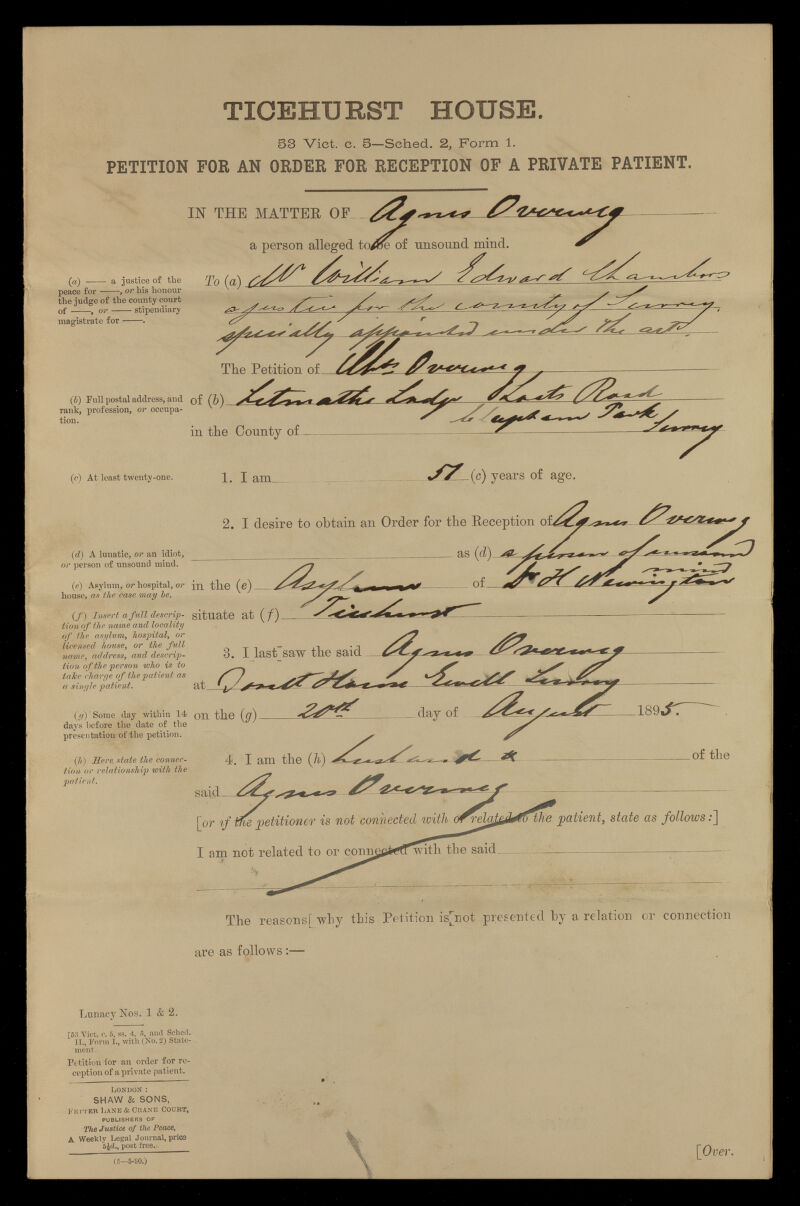 TICEHURST HOUSE.
53 Vict. c. 5—Sched. 2, Form 1.
PETITION FOR AN ORDER FOR RECEPTION OF A PRIVATE PATIENT.
IN THE MATTER OF Agnes Overweg
a person alleged to be of unsound mind.
(a) —— a justice of the
peace for ——, or his honour
the judge of the county court
of ——, or —— stipendiary
magistrate for ——.
To (a) Mr William Edward Chambers
a justice for the county of Surrey,
specially appointed under the acts.
The Petition of Chas Overweg
(b) Full postal address, and
rank, profession, or occupa-
tion.
of (b) Letmathe Lodge Road
Clapham Park
in the County of Surrey
(c) At least twenty-one.
1. I am 51 (c) years of age.
2. I desire to obtain an Order for the Reception of Agnes Overweg
(d) A lunatic, or an idiot,
or person of unsound mind.
as (d) a person of unsound
mind
(e) Asylum, or hospital, or
house, as the case may be.
in the (e) Asylum of Dr H Newington
(f) Insert a full descrip-
tion of the name and locality
of the asylum, hospital, or
licensed house, or the full
name, address, and descrip-
tion of the person who is to
take charge of the patient as
a single patient.
situate at (f) Ticehurst
3. I last saw the said Agnes Overweg
at House Ewell Surrey
(g) Some day within 14
days before the date of the
presentation of the petition.
on the (g) 20th day of August 1895.
(h) Here state the connec-
tion or relationship with the
patient.
4. I am the (h) husband of the
said Agnes Overweg
[or if the petitioner is not connected with or related to the patient, state as follows:]
I am not related to or connected with the said
The reasons why this Petition is not presented by a relation or connection
are as follows:—
Lunacy Nos. 1 & 2.
[53 Vict. c. 5, ss. 4, 5, and Sched.
II., Form I., with (No. 2) State-
ment
Petition for an order for re-
ception of a private patient.
LONDON:
SHAW & SONS,
FETTER LANE & CRANE COURT,
PUBLISHERS OF
The Justice of the Peace,
A Weekly Legal Journal, price
5½d., post free.
(5—5-90.)
[Over.